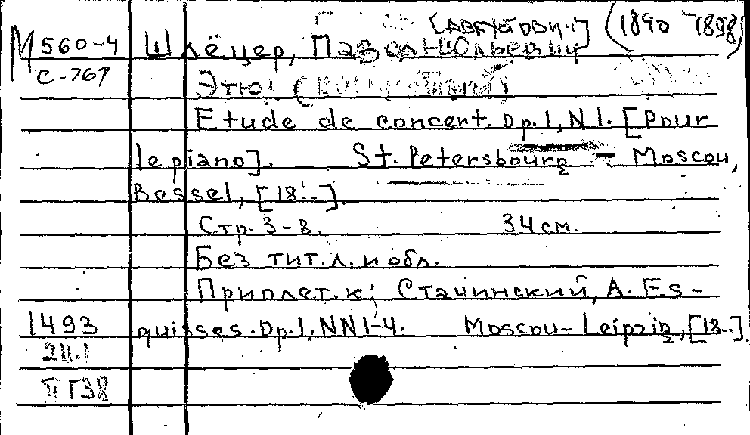 [Августович] (1840 1898)
М 560-4 Шлёцер, Павел Юльевич
С-767
Этюд (концертный)
Etude de concert. Op.1, N1. [Pour
le piano]. St. Petersbourg – Moscou,
Bessel, [18..].
Стр. 3-8. 34 см.
Без тит. л. и обл.
Приплет. к: Стачинский, А. Es-
1493 quisses. Op.1, NN1-4. Moscou-Leipzig, [18..].
2Н.1
П Г38